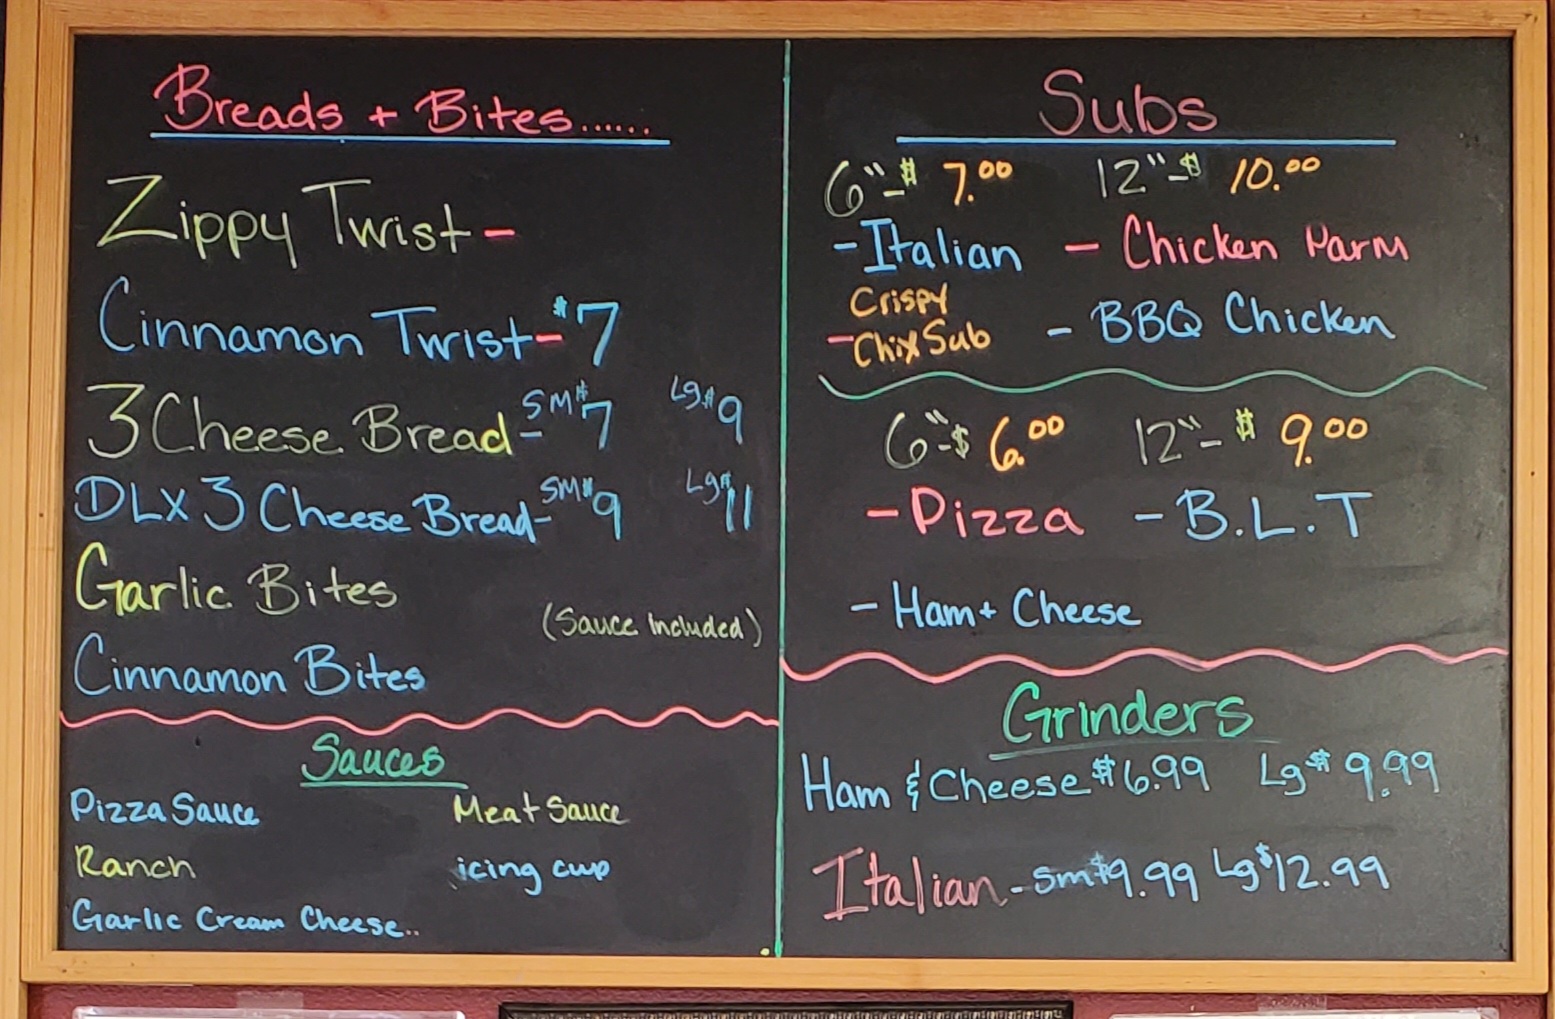 Breads + Bites......
Zippy Twist -
Cinnamon Twist - $7
3 Cheese Bread - SM $7 Lg $9
DLX 3 Cheese Bread - SM $9 Lg $11
Garlic Bites
(Sauce included)
Cinnamon Bites
Sauces
Pizza Sauce Meat Sauce
Ranch icing cup
Garlic Cream Cheese..
Subs
6" - $ 7.00 12" - $ 10.00
- Italian - Chicken Parm
Crispy
- Chix Sub - BBQ Chicken
6" - $ 6.00 12" - $ 9.00
- Pizza - B.L.T
- Ham + Cheese
Grinders
Ham & Cheese $6.99 Lg $9.99
Italian - Sm $9.99 Lg $12.99